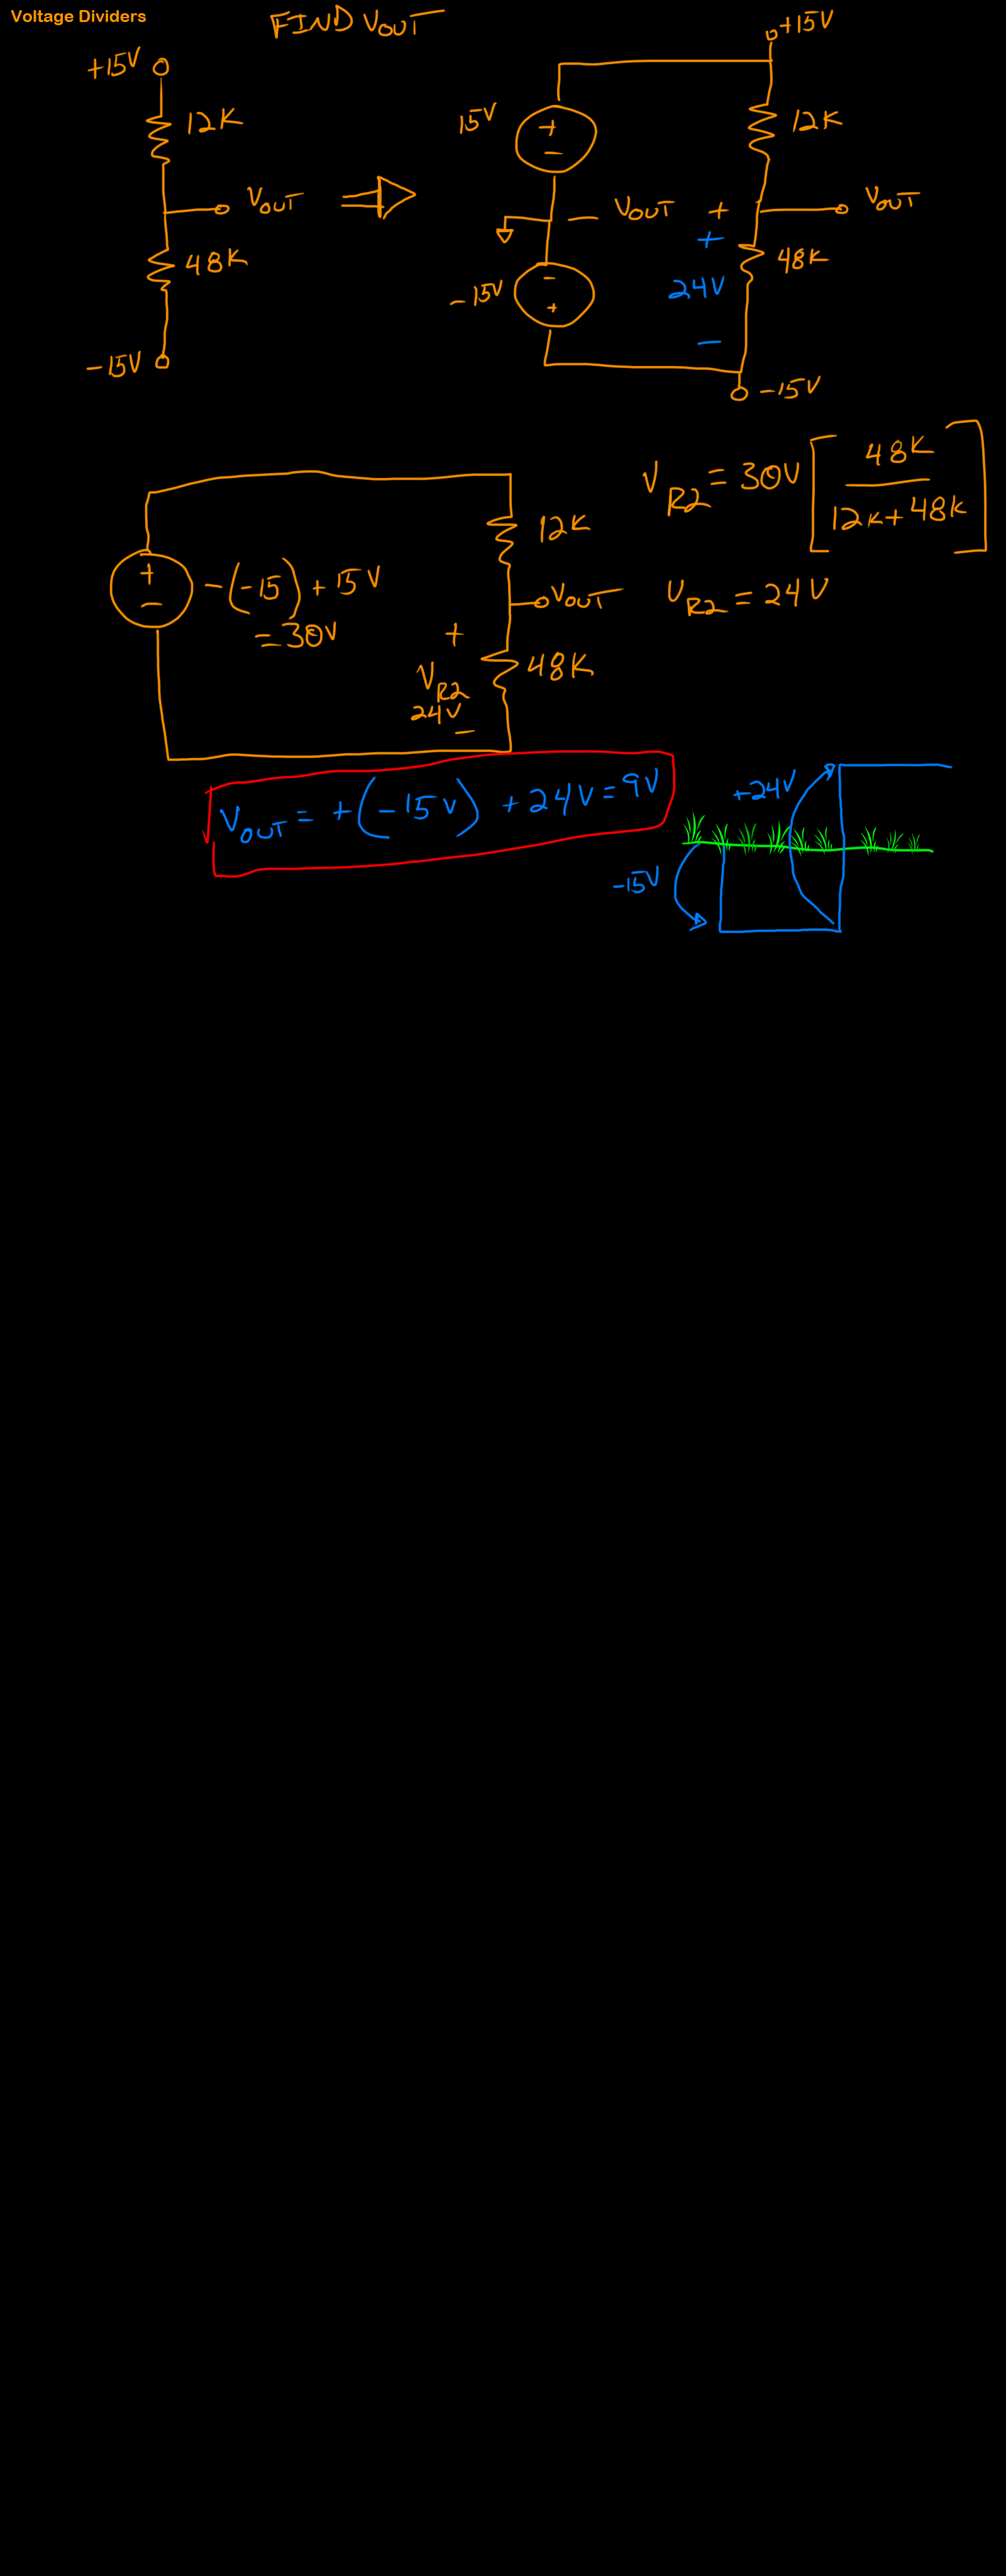 Voltage Dividers
FIND VOUT
+15V
12K
VOUT
48K
-15V
+15V
15V
+
-
12K
- VOUT +
VOUT
+
24V
-
48K
-15V
-
+
-15V
+
-
-(-15)+15V
=30V
12K
VOUT
+
VR2
24V
-
48K
VR2 = 30V [48K / 12K+48K]
VR2 = 24V
VOUT = +(-15V) +24V=9V
+24V
-15V